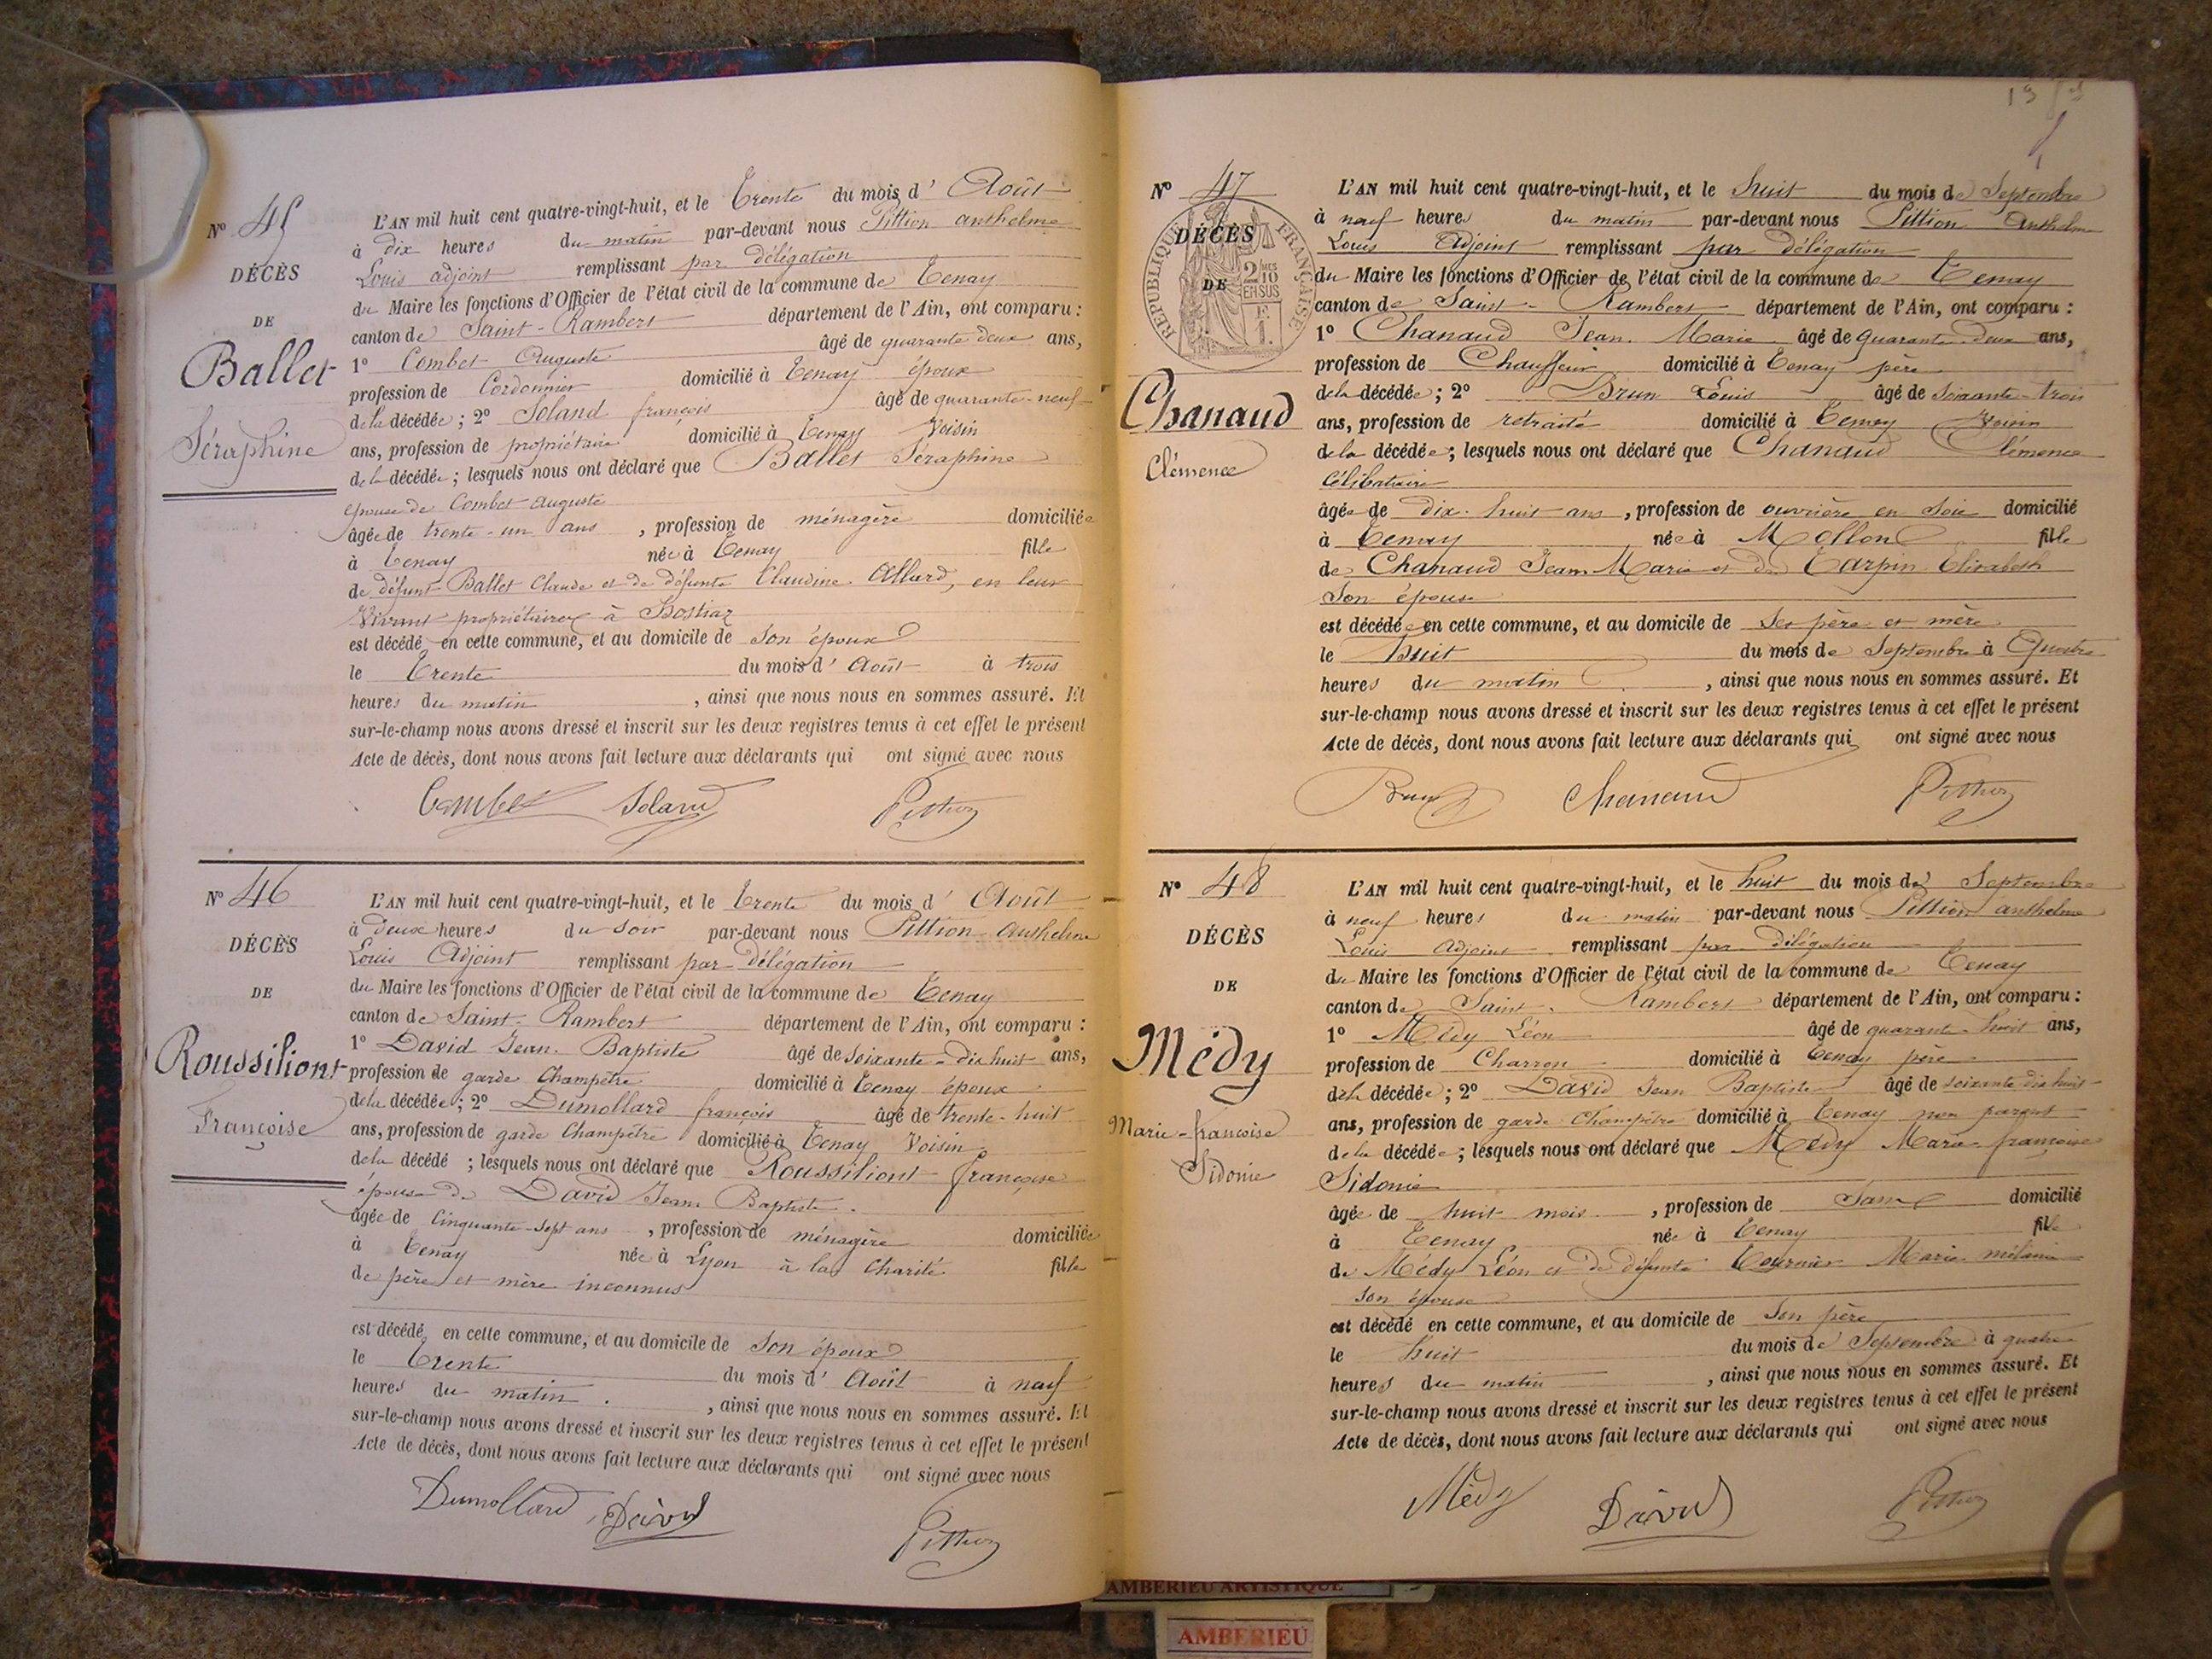 N° 45
DÉCÈS
DE
Ballet
Séraphine
L'AN mil huit cent quatre-vingt-huit, et le Trente du mois d' Août
à dix heures du matin par-devant nous Pittion anthelme
Louis adjoint remplissant par délégation
du Maire les fonctions d'Officier de l'état civil de la commune de Tenay
canton de Saint-Rambert département de l'Ain, ont comparu :
1° Combet Auguste âgé de quarante deux ans,
profession de Cordonnier domicilié à Tenay époux
de la décédée ; 2° Soland françois âgé de quarante-neuf
ans, profession de propriétaire domicilié à Tenay Voisin
de la décédée ; lesquels nous ont déclaré que Ballet Séraphine
épouse de Combet Auguste
âgée de trente-un ans , profession de ménagère domiciliée
à Tenay née à Tenay fille
de défunt Ballet Claude et de défunte Claudine Allard, en leur
Vivant propriétaires à
est décédé en cette commune, et au domicile de son époux
le Trente du mois d' Août à trois
heures du matin , ainsi que nous nous en sommes assuré. Et
sur-le-champ nous avons dressé et inscrit sur les deux registres tenus à cet effet le présent
Acte de décès, dont nous avons fait lecture aux déclarants qui ont signé avec nous
Combet Soland Pittion
N° 46
DÉCÈS
DE
Roussiliont
Françoise
L'AN mil huit cent quatre-vingt-huit, et le Trente du mois d' Août
à Deux heures du soir par-devant nous Pittion Anthelme
Louis Adjoint remplissant par délégation
du Maire les fonctions d'Officier de l'état civil de la commune de Tenay
canton de Saint-Rambert département de l'Ain, ont comparu :
1° David Jean-Baptiste âgé de soixante-dix huit ans,
profession de garde Champêtre domicilié à Tenay époux
de la décédée ; 2° Dumollard françois âgé de trente-huit
ans, profession de garde Champêtre domicilié à Tenay Voisin
de la décédé ; lesquels nous ont déclaré que Roussiliont françoise
épouse de David Jean Baptiste
âgée de Cinquante-sept ans , profession de ménagère domiciliée
à Tenay née à Lyon à la Charité fille
de père et mère inconnus
est décédé en cette commune, et au domicile de son époux
le Trente du mois d' Août à neuf
heures du matin , ainsi que nous nous en sommes assuré. Et
sur-le-champ nous avons dressé et inscrit sur les deux registres tenus à cet effet le présent
Acte de décès, dont nous avons fait lecture aux déclarants qui ont signé avec nous
Dumollard David Pittion
N° 47
DÉCÈS
DE
RÉPUBLIQUE FRANÇAISE
2/10 EN SUS
Chanaud
Clémence
L'AN mil huit cent quatre-vingt-huit, et le huit du mois de Septembre
à neuf heures du matin par-devant nous Pittion Anthelme
Louis Adjoint remplissant par délégation
du Maire les fonctions d'Officier de l'état civil de la commune de Tenay
canton de Saint-Rambert département de l'Ain, ont comparu :
1° Chanaud Jean Marie âgé de quarante-deux ans,
profession de Chauffeur domicilié à Tenay père
de la décédée ; 2° Brun Louis âgé de soixante-trois
ans, profession de retraité domicilié à Tenay Voisin
de la décédée ; lesquels nous ont déclaré que Chanaud Clémence
Célibataire
âgée de dix-huit ans , profession de ouvrière en soie domicilié
à Tenay née à Mollon fille
de Chanaud Jean Marie et de Tarpin Elisabeth
son épouse
est décédée en cette commune, et au domicile de ses père et mère
le huit du mois de Septembre à Quatre
heures du matin , ainsi que nous nous en sommes assuré. Et
sur-le-champ nous avons dressé et inscrit sur les deux registres tenus à cet effet le présent
Acte de décès, dont nous avons fait lecture aux déclarants qui ont signé avec nous
Brun Chanaud Pittion
N° 48
DÉCÈS
DE
Médy
Marie-françoise
Sidonie
L'AN mil huit cent quatre-vingt-huit, et le huit du mois de Septembre
à neuf heures du matin par-devant nous Pittion anthelme
Louis Adjoint remplissant par délégation
du Maire les fonctions d'Officier de l'état civil de la commune de Tenay
canton de Saint-Rambert département de l'Ain, ont comparu :
1° Médy Léon âgé de quarante-huit ans,
profession de Charron domicilié à Tenay père
de la décédée ; 2° David Jean Baptiste âgé de soixante dix huit
ans, profession de garde Champêtre domicilié à Tenay non parent
de la décédée ; lesquels nous ont déclaré que Médy Marie françoise
Sidonie
âgée de huit mois , profession de Sans domicilié
à Tenay née à Tenay fille
de Médy Léon et de défunte Marie mélanie
son épouse
est décédé en cette commune, et au domicile de son père
le huit du mois de Septembre à quatre
heures du matin , ainsi que nous nous en sommes assuré. Et
sur-le-champ nous avons dressé et inscrit sur les deux registres tenus à cet effet le présent
Acte de décès, dont nous avons fait lecture aux déclarants qui ont signé avec nous
Médy David Pittion
AMBERIEU ARTISTIQUE
AMBERIEU